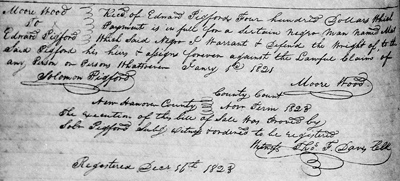 Moore Hood
To
Edward Pigford
Recd of Edward Pigford Four hundred Dollars Which
Payment is in full for a Sertain Negro Man Named
Which said Negro I Warrant & Defend the Weight of, to the
said Pigford his heirs & assigns forever against the Lawful Claims of
any Person or Persons Whatsoever Janry 1st 1821
Solomon Pigford
Moore Hood
New Hanover County
County Court
Nov Term 1828
The execution of this bill of Sale Was Proved by
Solo Pigford & ordered to be registered
Witness Thos F. Davis Clk
Registered Decr 16th 1828